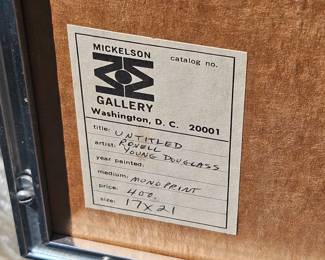 MICKELSON
catalog no.
GALLERY
Washington, D. C. 20001
title: UNTITLED
artist: ROVELL
YOUNG DOUGLASS
year painted:
medium: MONOPRINT
price: 400.
size: 17X21